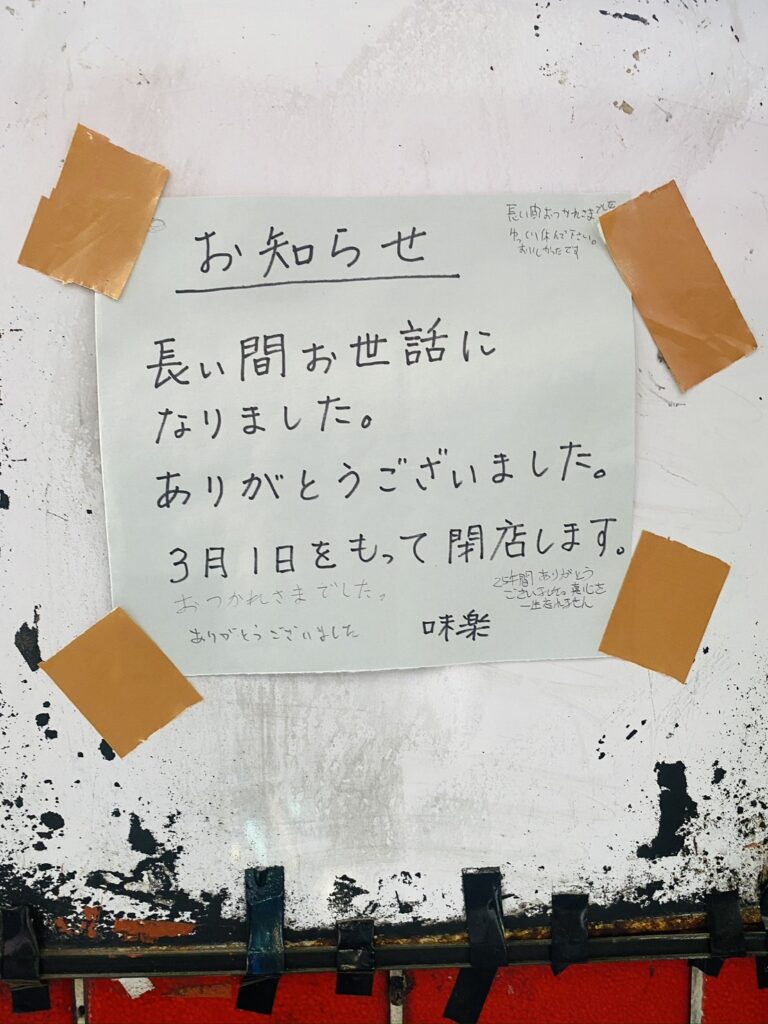 お知らせ
長い間おつかれさまでした
ゆっくり休んで下さい。
おいしかったです
長い間お世話に
なりました。
ありがとうございました。
3月1日をもって閉店します。
おつかれさまでした。
ありがとうございました
25年間ありがとう
ございました。真心を
一生忘れません
味楽